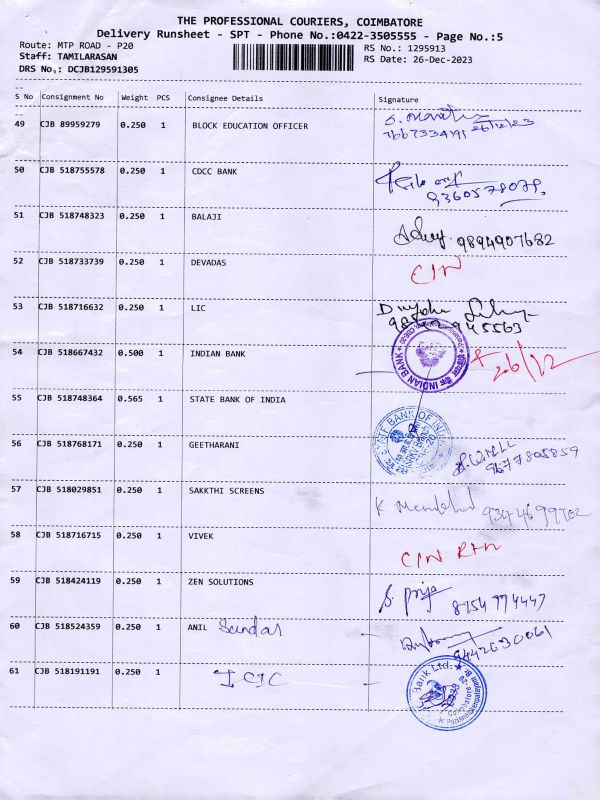 THE PROFESSIONAL COURIERS, COIMBATORE
Delivery Runsheet - SPT - Phone No.:0422-3505555 - Page No.:5
Route: MTP ROAD - P20
RS No.: 1295913
Staff: TAMILARASAN
RS Date: 26-Dec-2023
DRS No.: DCJB129591305
S No Consignment No Weight PCS Consignee Details Signature
49 CJB 89959279 0.250 1 BLOCK EDUCATION OFFICER
7667334191 26/12/23
50 CJB 518755578 0.250 1 CDCC BANK
9360578079
51 CJB 518748323 0.250 1 BALAJI 9894907682
52 CJB 518733739 0.250 1 DEVADAS
53 CJB 518716632 0.250 1 LIC
54 CJB 518667432 0.500 1 INDIAN BANK 26/12
INDIAN BANK
55 CJB 518748364 0.565 1 STATE BANK OF INDIA
BANK OF
56 CJB 518768171 0.250 1 GEETHARANI
9677805859
57 CJB 518029851 0.250 1 SAKKTHI SCREENS
58 CJB 518716715 0.250 1 VIVEK
59 CJB 518424119 0.250 1 ZEN SOLUTIONS S. Priya 8754994447
60 CJB 518524359 0.250 1 ANIL Sundar
9442630061
61 CJB 518191191 0.250 1
Bank Ltd.